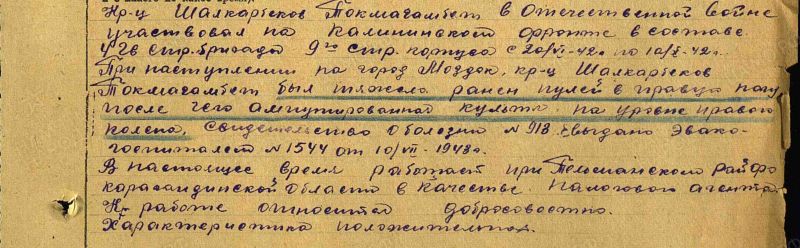 Кр-ц Шалкарбеков Токмагамбет в Отечественной войне
участвовал на Калининском фронте в составе
42в стр. бригады 9го стр. корпуса с 20/VI-42г. по 10/X-42г.
При наступлении на город Моздок, кр-ц Шалкарбеков
Токмагамбет был тяжело ранен пулей в правую ногу
после чего ампутированной культя на уровне правого
колена, свидетельство о болезни №913 выдано Эвако-
госпиталем №1544 от 10/VII-1943г.
В настоящее время работает при Тельманского Райфо
карагандинской области в качестве налогового агента
К работе относится добросовестно.
Характеристика положительная.